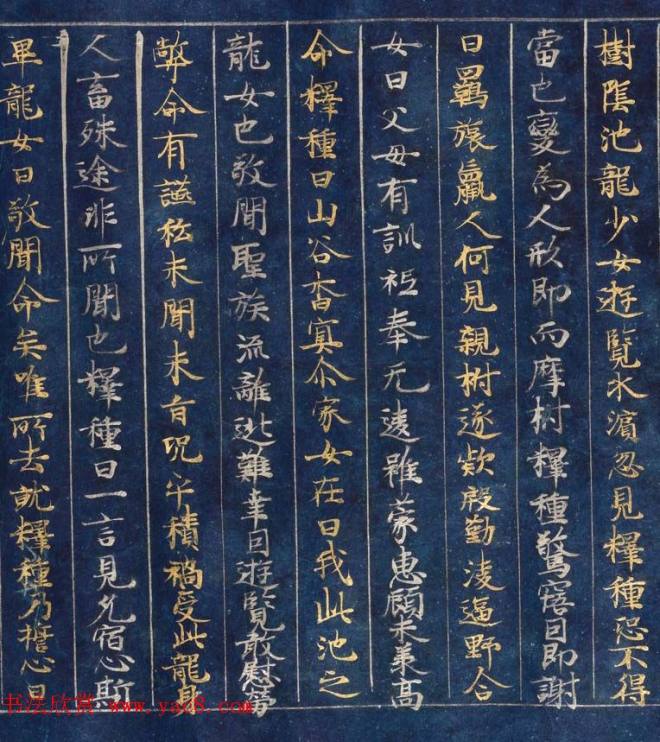 樹陰池龍少女遊覽水濱忽見釋種恐不得
當也變為人形即而摩拊釋種驚寤因即謝
曰羈旅羸人何見親拊遂款殷勤淩逼野合
女曰父母有訓祗奉无違雖蒙惠顧未承高
命釋種曰山谷杳冥尒家女在曰我此池之
龍女也敬聞聖族流離逃難幸因遊覽敢慰勞
弊命有讌私未聞来旨呪乎積禍受此龍身
人畜殊途非所聞也釋種曰一言見允宿心斯
畢龍女曰敬聞命矣唯所去就釋種乃誓心曰
书法欣赏 www.yac8.com